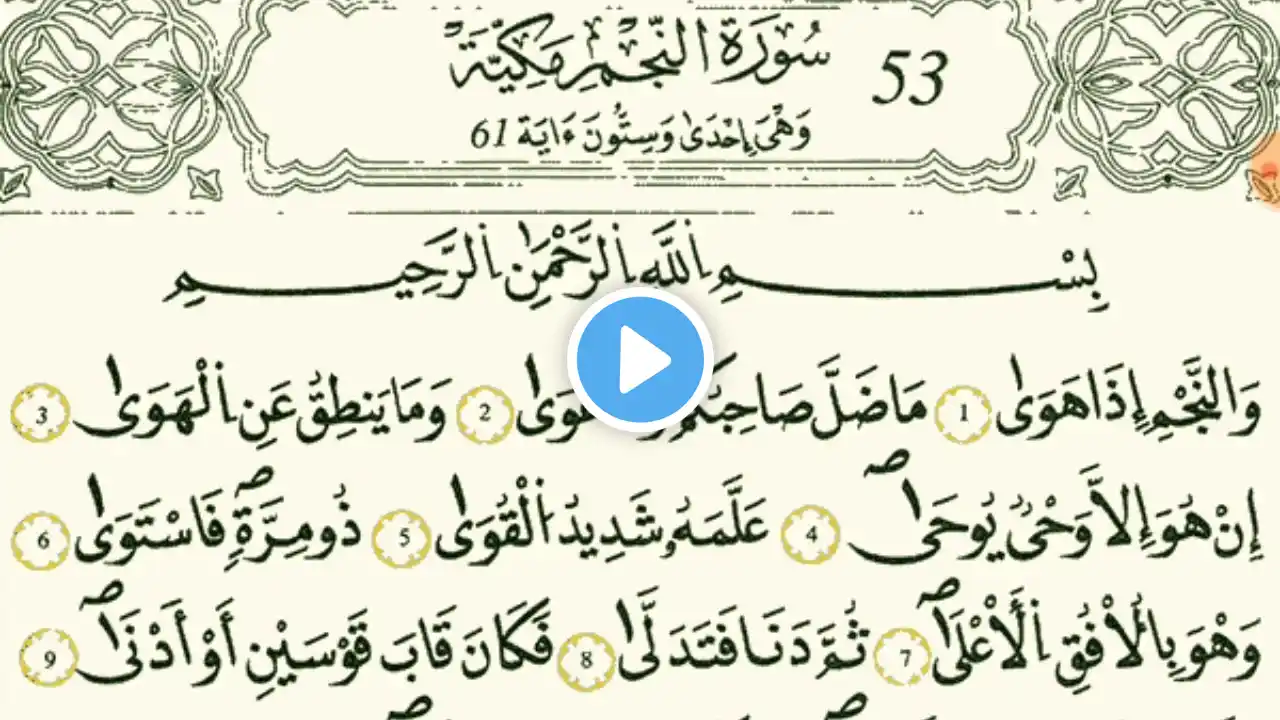 سُورَةُ النَّجْمِ مَكِّيَّةٌ 53
وَهْيَ إِحْدَىٰ وَسِتُّونَ ءَايَةً 61
بِسْمِ اِللَّهِ اِلرَّحْمَٰنِ اِلرَّحِيمِ
وَالنَّجْمِ إِذَا هَوَىٰ 1 مَا ضَلَّ صَاحِبُكُمْ 2 وَمَا يَنطِقُ عَنِ اِلْهَوَىٰ 3
إِنْ هُوَ إِلَّا وَحْيٌ يُوحَىٰ 4 عَلَّمَهُۥ شَدِيدُ اُلْقُوَىٰ 5 ذُو مِرَّةٍ فَاسْتَوَىٰ 6
وَهْوَ بِالْأُفُقِ اِلْأَعْلَىٰ 7 ثُمَّ دَنَا فَتَدَلَّىٰ 8 فَكَانَ قَابَ قَوْسَيْنِ أَوْ أَدْنَىٰ 9